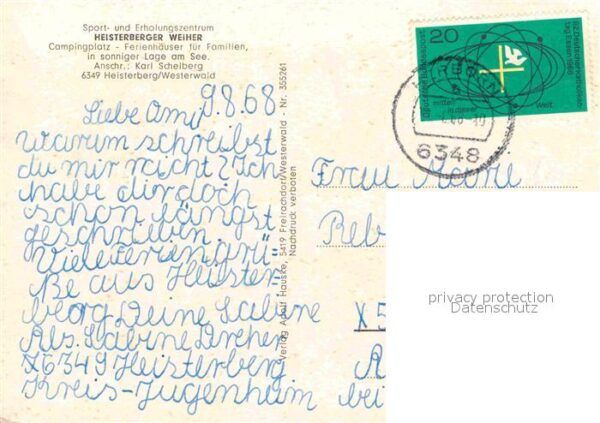 Sport- und Erholungszentrum
HEISTERBERGER WEIHER
Campingplatz - Ferienhäuser für Familien,
in sonniger Lage am See.
Anschr.: Karl Scheiberg
6349 Heisterberg/Westerwald
9.8.68
Liebe Omi
Warum schreibst
du mir nicht? Ich
habe dir doch
schon längst
geschrieben.
Viele Feriengrü-
ße aus Heister-
berg Deine Sabine
Abs. Sabine Dreher
X6349 Heisterberg
Kreis-Jugenheim
Verlag Adolf Hauske, 5419 Freirachdorf/Westerwald - Nr. 355261
Nachdruck verboten
20
Deutsche Bundespost
82. Deutscher Katholikentag Essen 1968
mitten in dieser Welt
6348
Frau
Reb
X 5
A
bei
privacy protection
Datenschutz